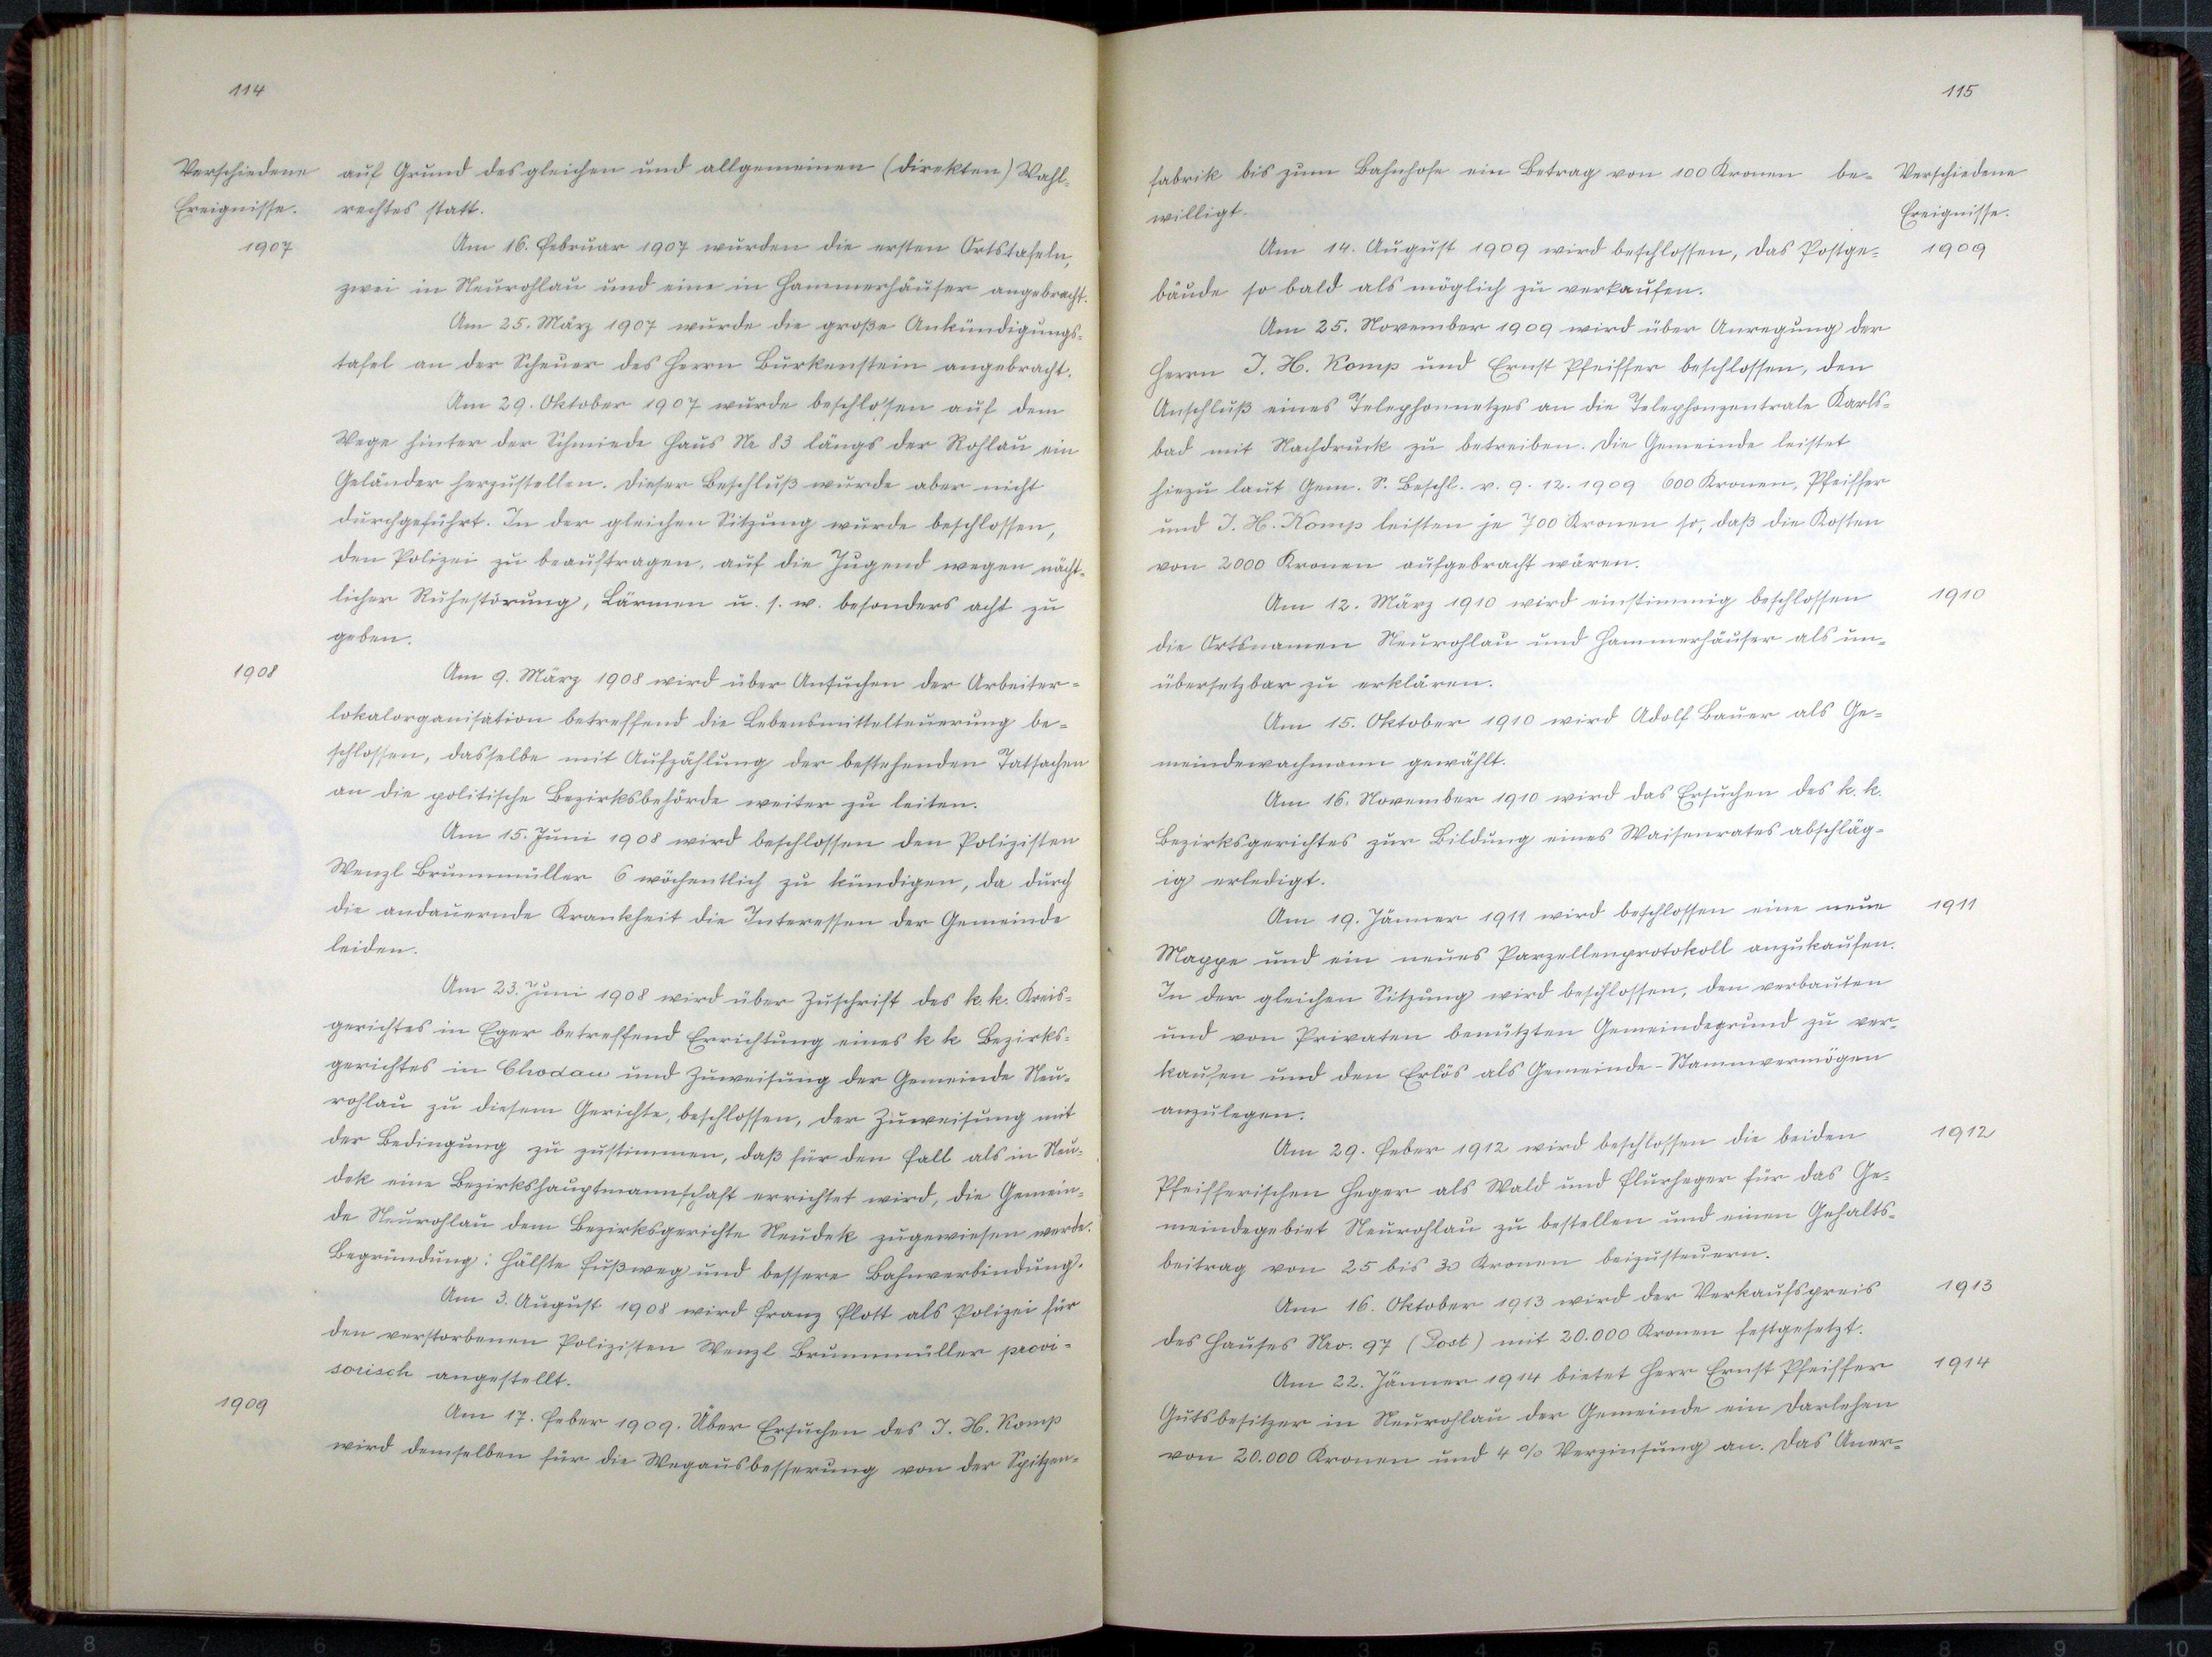 114
Verschiedene
Ereignisse.
1907
auf Grund des gleichen und allgemeinen (direkten) Wahl-
rechtes statt.
Am 16. Februar 1907 wurden die ersten Ortstafeln,
zwei in Neurohlau und eine in Hammerhäuser angebracht.
Am 25. März 1907 wurde die große Ankündigungs-
tafel an der Scheuer des Herrn Burkenstein angebracht.
Am 29. Oktober 1907 wurde beschlossen auf dem
Wege hinter der Schmiede Haus Nr 83 längs der Rohlau ein
Geländer herzustellen. Dieser Beschluß wurde aber nicht
durchgeführt. In der gleichen Sitzung wurde beschlossen,
den Polizei zu beauftragen, auf die Jugend wegen nächt-
licher Ruhestörung, Lärmen u. s. w. besonders acht zu
geben.
1908
Am 9. März 1908 wird über Ansuchen der Arbeiter-
lokalorganisation betreffend die Lebensmittelteuerung be-
schlossen, dasselbe mit Aufzählung der bestehenden Tatsachen
an die politische Bezirksbehörde weiter zu leiten.
Am 15. Juni 1908 wird beschlossen den Polizisten
Wenzl Brummmüller 6 wöchentlich zu kündigen, da durch
die andauernde Krankheit die Interessen der Gemeinde
leiden.
Am 23. Juni 1908 wird über Zuschrift des k. k. Kreis-
gerichtes in Eger betreffend Errichtung eines k k Bezirks-
gerichtes in Chodau und Zuweisung der Gemeinde Neu-
rohlau zu diesem Gerichte, beschlossen, der Zuweisung mit
der Bedingung zu zustimmen, daß für den Fall als in Neu-
dek eine Bezirkshauptmannschaft errichtet wird, die Gemein-
de Neurohlau dem Bezirksgerichte Neudek zugewiesen werde.
Begründung: Hälfte Fußweg und bessere Bahnverbindung.
Am 3. August 1908 wird Franz Flott als Polizei für
den verstorbenen Polizisten Wenzl Brummmüller provi-
sorisch angestellt.
1909
Am 17. Feber 1909. Über Ersuchen des J. H. Komp
wird demselben für die Wegausbesserung von der Spitzen-
115
Verschiedene
Ereignisse.
1909
fabrik bis zum Bahnhofe ein Betrag von 100 Kronen be-
willigt.
Am 14. August 1909 wird beschlossen, das Postge-
bäude so bald als möglich zu verkaufen.
Am 25. November 1909 wird über Anregung der
Herrn J. H. Komp und Ernst Pfeiffer beschlossen, den
Anschluß eines Telephonnetzes an die Telephonzentrale Karls-
bad mit Nachdruck zu betreiben. Die Gemeinde leistet
hiezu laut Gem. S. Beschl. v. 9. 12. 1909 600 Kronen, Pfeiffer
und J. H. Komp leisten je 700 Kronen so, daß die Kosten
von 2000 Kronen aufgebracht wären.
1910
Am 12. März 1910 wird einstimmig beschlossen
die Ortsnamen Neurohlau und Hammerhäuser als un-
übersetzbar zu erklären.
Am 15. Oktober 1910 wird Adolf Bauer als Ge-
meindewachmann gewählt.
Am 16. November 1910 wird das Ersuchen des k. k.
Bezirksgerichtes zur Bildung eines Waisenrates abschläg-
ig erledigt.
1911
Am 19. Jänner 1911 wird beschlossen eine neue
Mappe und ein neues Parzellenprotokoll anzukaufen.
In der gleichen Sitzung wird beschlossen, den verbauten
und von Privaten benützten Gemeindegrund zu ver-
kaufen und den Erlös als Gemeinde-Stammvermögen
anzulegen.
1912
Am 29. Feber 1912 wird beschlossen die beiden
Pfeifferischen Heger als Wald und Flurheger für das Ge-
meindegebiet Neurohlau zu bestellen und einen Gehalts-
beitrag von 25 bis 30 Kronen beizusteuern.
1913
Am 16. Oktober 1913 wird der Verkaufspreis
des Hauses Nro. 97 (Post) mit 20.000 Kronen festgesetzt.
1914
Am 22. Jänner 1914 bietet Herr Ernst Pfeiffer
Gutsbesitzer in Neurohlau der Gemeinde ein Darlehen
von 20.000 Kronen und 4 % Verzinsung an. Das Aner-
8 7 6 5 4 3 2 1 1 2 3 4 5 6 7 8 9 10